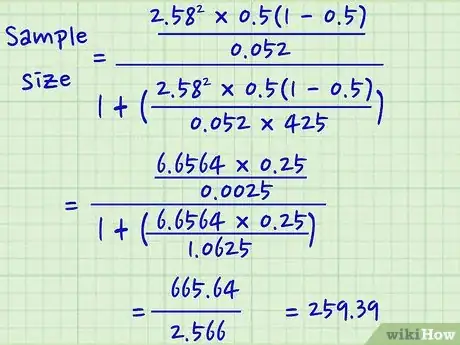 Sample size = 2.58² x 0.5(1 - 0.5)
0.052
1 + (2.58² x 0.5(1 - 0.5)
0.052 x 425)
= 6.6564 x 0.25
0.0025
1 + (6.6564 x 0.25
1.0625)
= 665.64
2.566
= 259.39
wikiHow